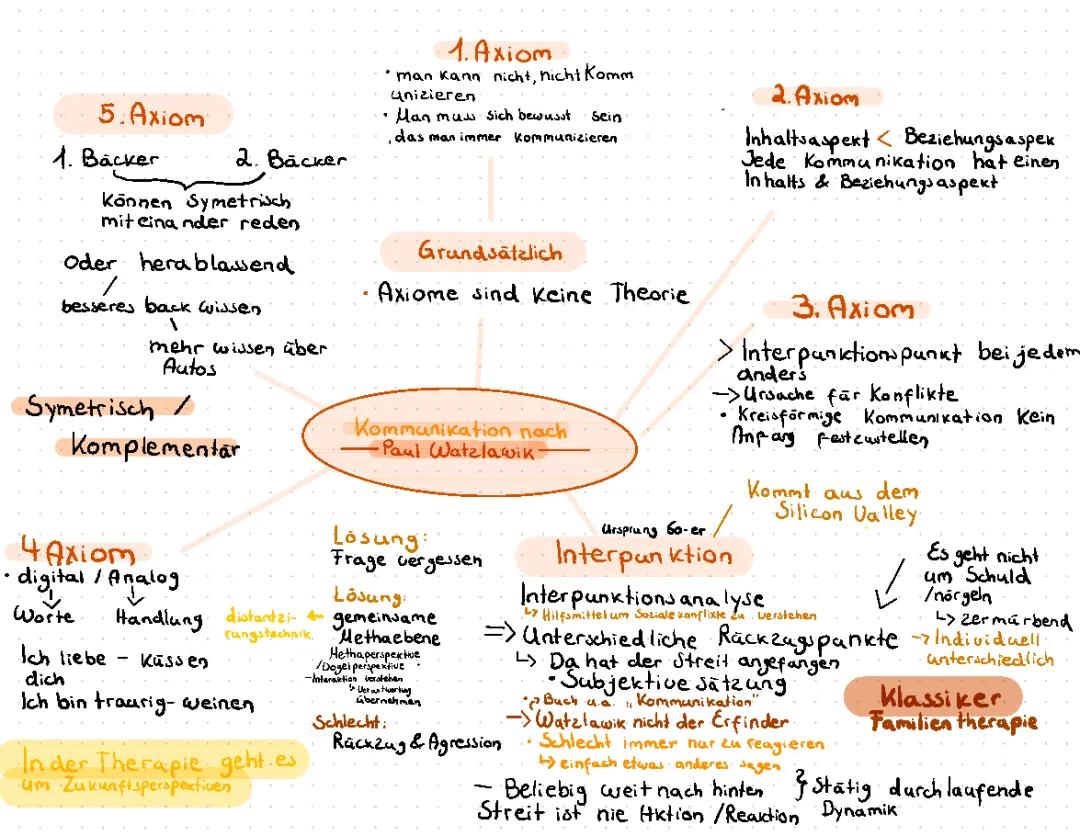 1. Axiom
• man kann nicht, nicht Komm
unizieren
• Man muss sich bewusst sein
, das man immer kommunizieren
2. Axiom
Inhaltsaspekt < Beziehungsaspek
Jede Kommunikation hat einen
Inhalts & Beziehungsaspekt
5. Axiom
1. Bäcker 2. Bäcker
können symetrisch
miteinander reden
Oder herablassend
besseres back wissen
mehr wissen über
Autos
Symetrisch /
Komplementär
Grundsätzlich
• Axiome sind keine Theorie
3. Axiom
> Interpunktionspunkt bei jedem
anders
-> Ursache für Konflikte
• Kreisförmige Kommunikation kein
Anfang festzustellen
Kommunikation nach
Paul Watzlawik
4 Axiom
• digital / Analog
Worte Handlung
Ich liebe - küssen
dich
Ich bin traurig - weinen
In der Therapie geht es
um Zukunftsperspektiven
Lösung:
Frage vergessen
Lösung:
distantzi-
rungstechnik
← gemeinsame
Methaebene
Methaperspektive
/Vogelperspektive
- Interaktion verstehen
↳ Verantwortung
übernehmen
Schlecht:
Rückzug & Agression
Kommt aus dem
Silicon Valley
Ursprung 60-er
Interpunktion
Interpunktionsanalyse
↳ Hilfsmittel um Soziale konflikte zu verstehen
=> Unterschiedliche Rückzugspunkte
↳ Da hat der Streit angefangen
• Subjektive sätzung
• Buch u.a. "Kommunikation"
-> Watzlawik nicht der Erfinder
• Schlecht immer nur zu reagieren
↳ einfach etwas anderes sagen
- Beliebig weit nach hinten
Streit ist nie Aktion / Reaktion
} Stätig durchlaufende
Dynamik
Es geht nicht
um Schuld
/nörgeln
↳ zermürbend
-> Individuell
unterschiedlich
Klassiker
Familientherapie